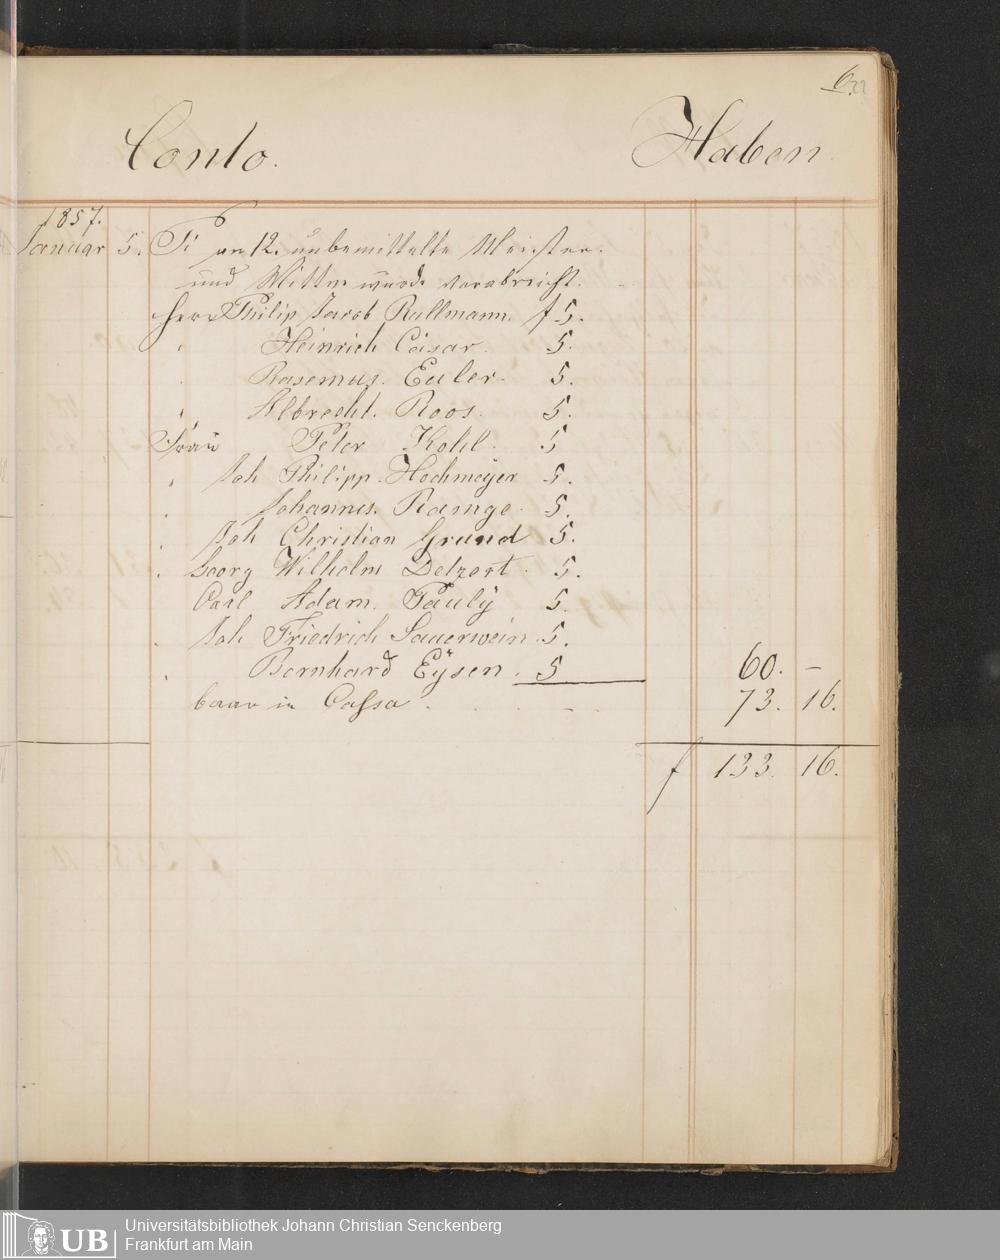 6.
22
Conto. Haben
1857.
Januar 5. an 12. unbemittelte Meister
und Wittw. wurde verabreicht.
Herr Philip Jacob Rullmann. f 5.
" Heinrich Cäsar. 5.
" Rasemus. Euler. 5.
" Albrecht. Roos. 5.
Frau Peter Kohl. 5
" Joh Philipp. Hochmeÿer 5.
" Johannes. Ramge. 5.
" Joh Christian Grund 5.
" Georg Wilhelm Delzert. 5.
Carl Adam. Paulÿ 5.
" Joh Friedrich Sauerwein. 5.
" Bernhard Eÿsen. 5 60. –
baar in Cassa . . . 73. 16.
f 133. 16.
UB Universitätsbibliothek Johann Christian Senckenberg
Frankfurt am Main